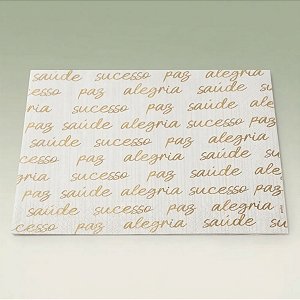 saúde sucesso paz alegria
ria sucesso paz saúde ale
paz saúde alegria sucesso
saúde sucesso paz alegria
sucesso paz alegria saúde
paz alegria saúde sucesso
saúde alegria sucesso paz
saúde sucesso alegria
sucesso paz alegria saúde su